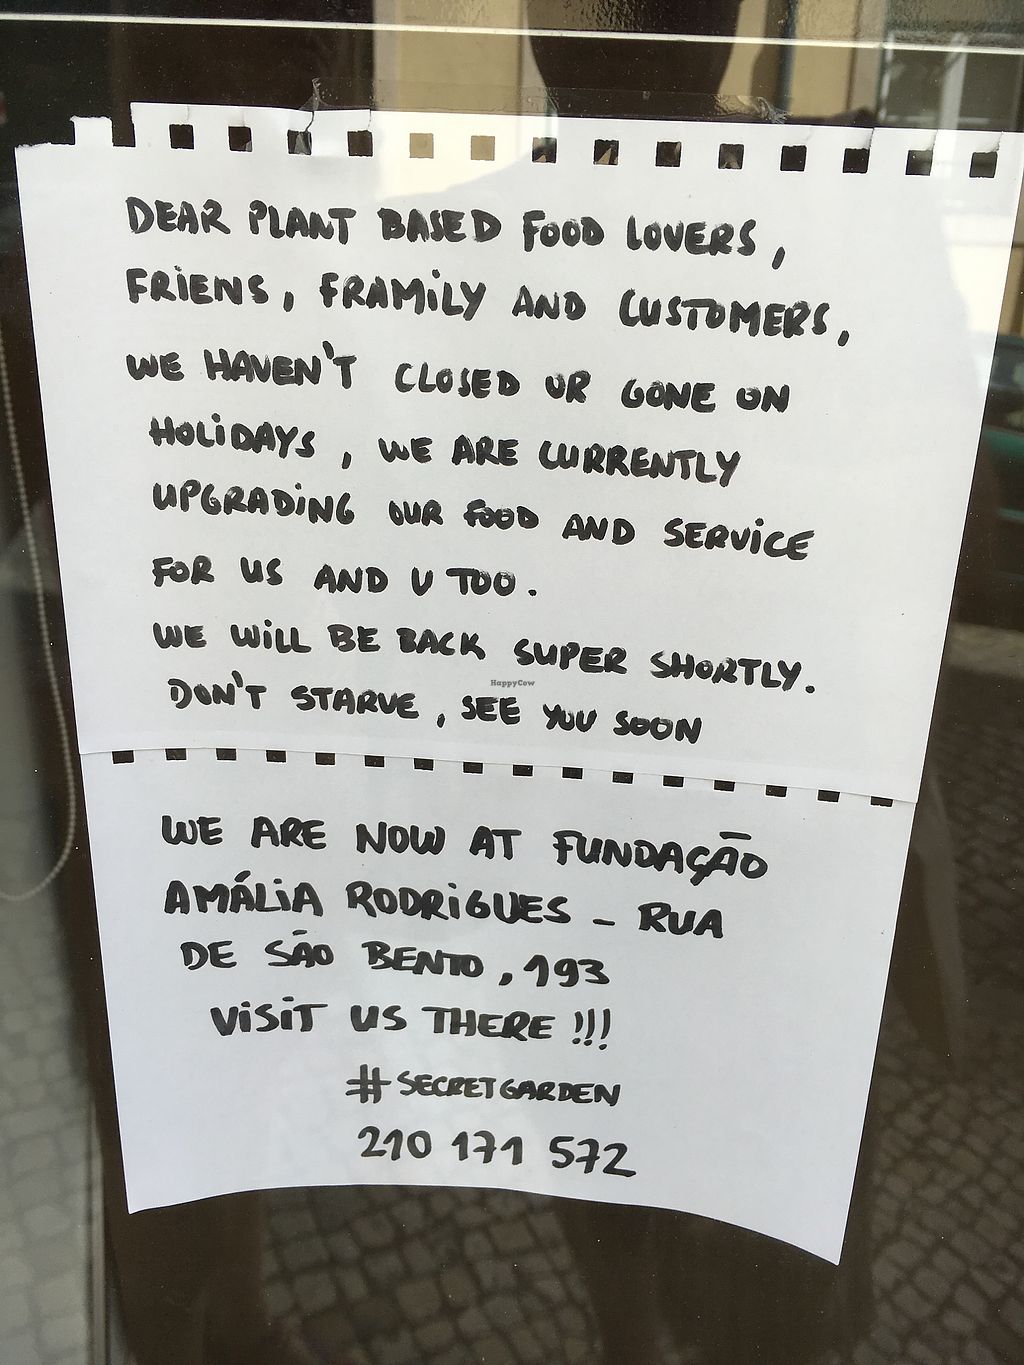 DEAR PLANT BASED FOOD LOVERS,
FRIENS, FRAMILY AND CUSTOMERS,
WE HAVEN'T CLOSED OR GONE ON
HOLIDAYS, WE ARE CURRENTLY
UPGRADING OUR FOOD AND SERVICE
FOR US AND U TOO.
WE WILL BE BACK SUPER SHORTLY.
HappyCow
DON'T STARVE, SEE YOU SOON
WE ARE NOW AT FUNDAÇÃO
AMÁLIA RODRIGUES - RUA
DE SÃO BENTO, 193
VISIT US THERE!!!
#SECRETGARDEN
210 171 572